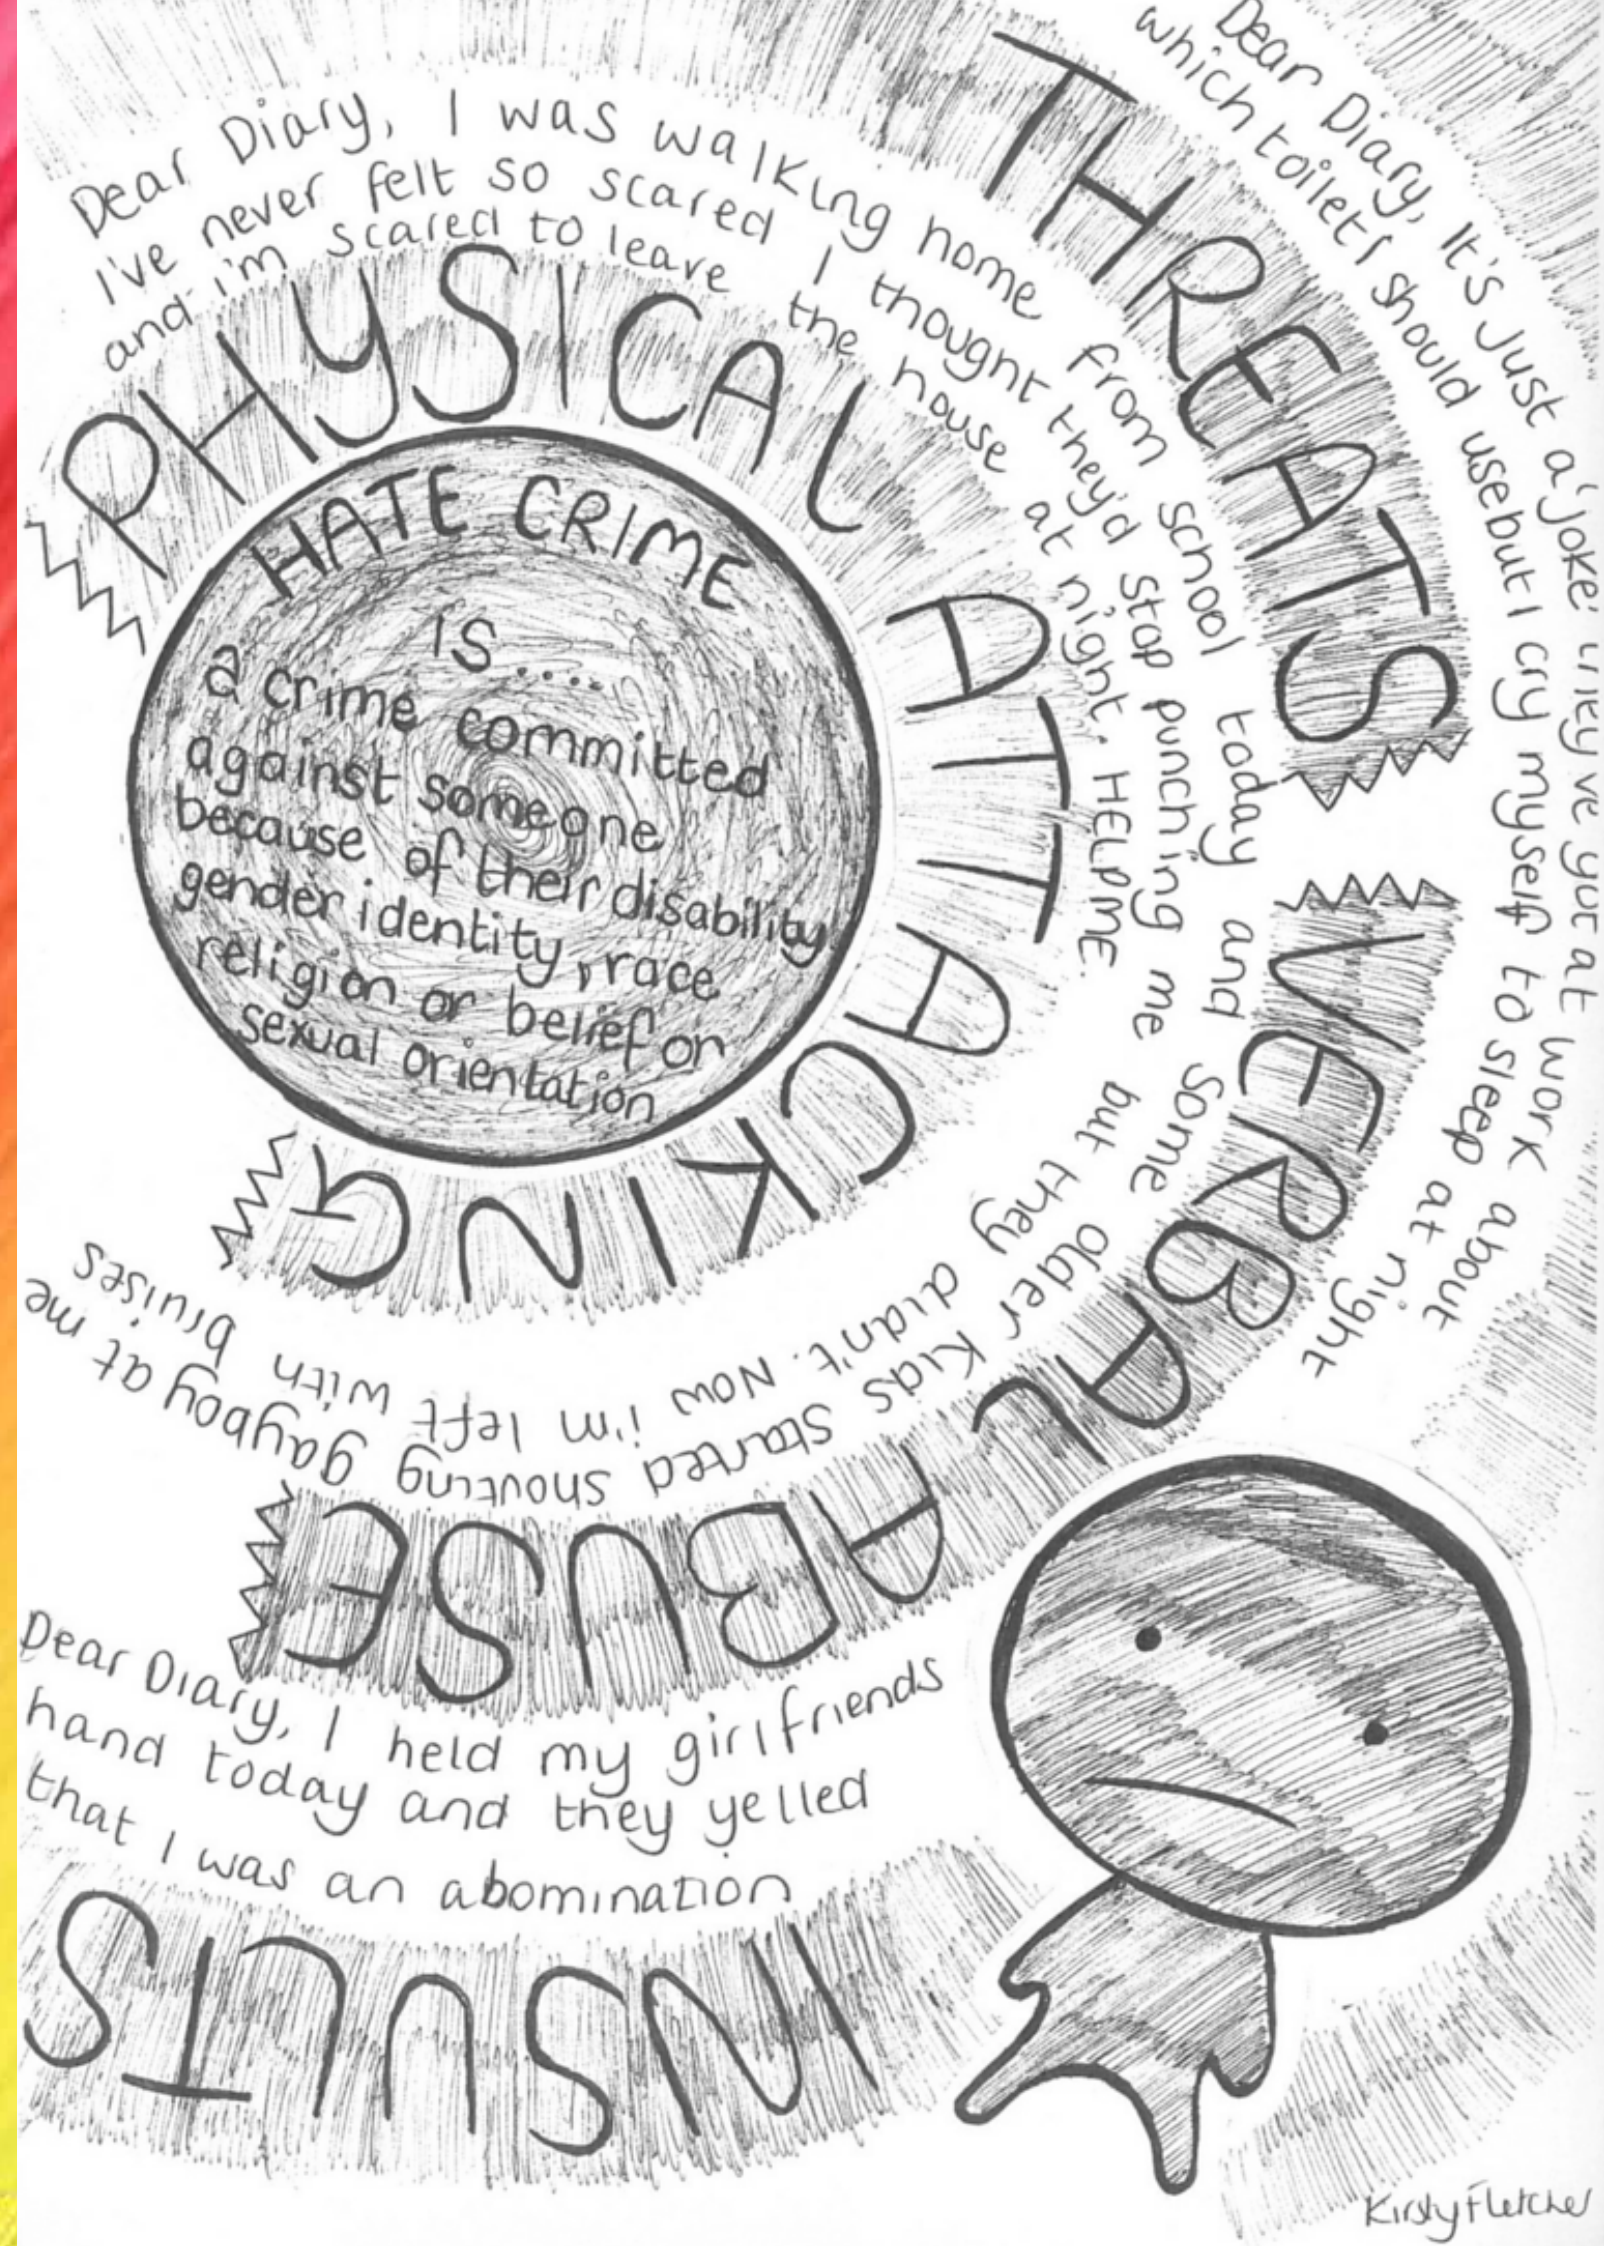 HATE CRIME
IS....
a crime committed
against someone
because of their disability
gender identity, race
religion or belief or
sexual orientation
PHYSICAL ATTACKING
Dear Diary, I was walking home from school today and some older kids started shouting gayboy at me
I've never felt so scared I thought they'd stop punching me but they didn't. Now i'm left with bruises
and i'm scared to leave the house at night. HELP ME.
THREATS
VERBAL ABUSE
Dear Diary, It's just a 'joke' they've got at work about
which toilet I should use but I cry myself to sleep at night
Dear Diary, I held my girlfriends
hand today and they yelled
that I was an abomination
INSULTS
Kirsty Fletcher